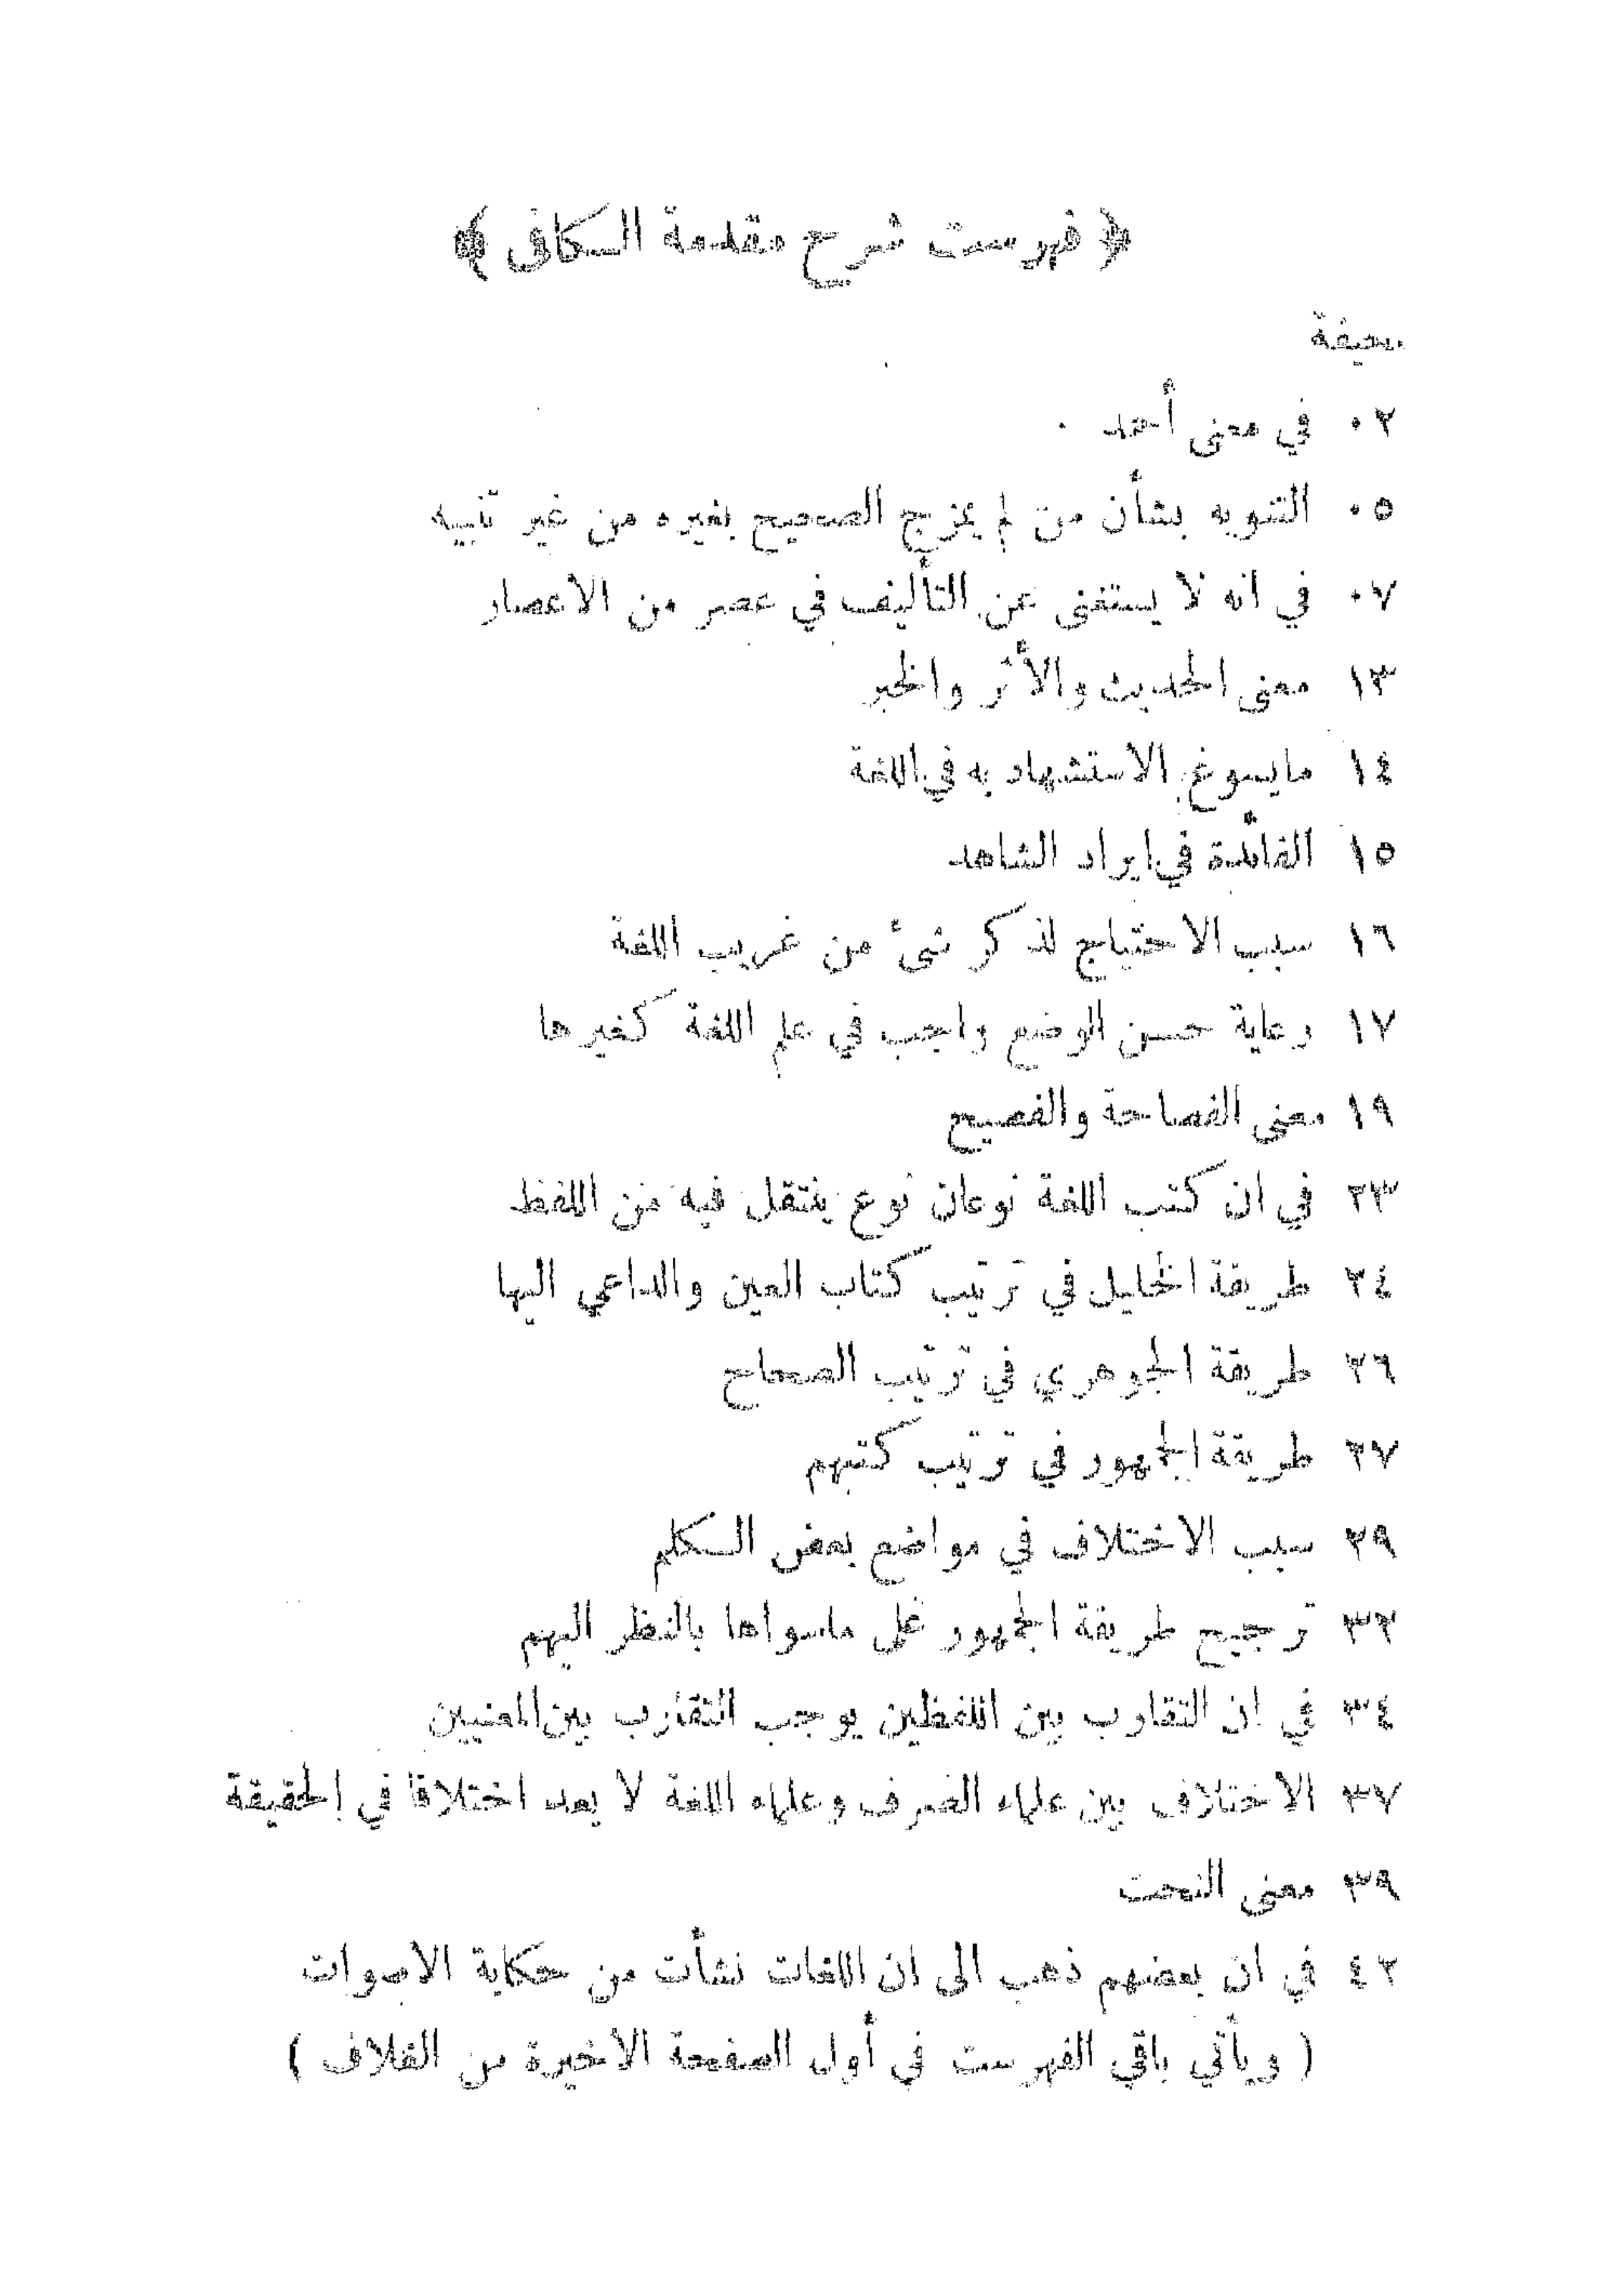 ﴿ فهرست شرح مقدمة الكافى ﴾
صحيفة
٠٢ في معنى أحمد
٠٥ التنويه بشأن من لم يمزج الصحيح بغيره من غير تنبيه
٠٧ في انه لا يستغنى عن التأليف في عصر من الاعصار
١٣ معنى الحديث والأثر والخبر
١٤ مايسوغ الاستشهاد به في اللغة
١٥ الفائدة في ايراد الشاهد
١٦ سبب الاحتياج لذكر شئ من غريب اللغة
١٧ رعاية حسن الوضع واجب في علم اللغة كغيرها
١٩ معنى الفصاحة والفصيح
٢٣ في ان كتب اللغة نوعان نوع ينتقل فيه من اللفظ
٢٤ طريقة الخليل في ترتيب كتاب العين والداعي اليها
٢٦ طريقة الجوهري في ترتيب الصحاح
٢٧ طريقة الجمهور في ترتيب كتبهم
٢٩ سبب الاختلاف في مواضع بعض الكلم
٣٢ ترجيح طريقة الجمهور على ماسواها بالنظر اليهم
٣٤ في ان التقارب بين اللفظين يوجب التقارب بين المعنيين
٣٧ الاختلاف بين علماء الصرف وعلماء اللغة لا يعد اختلافا في الحقيقة
٣٩ معنى النحت
٤٢ في ان بعضهم ذهب الى ان اللغات نشأت من حكاية الاصوات
( ويأتي باقي الفهرست في أول الصفحة الاخيرة من الغلاف )